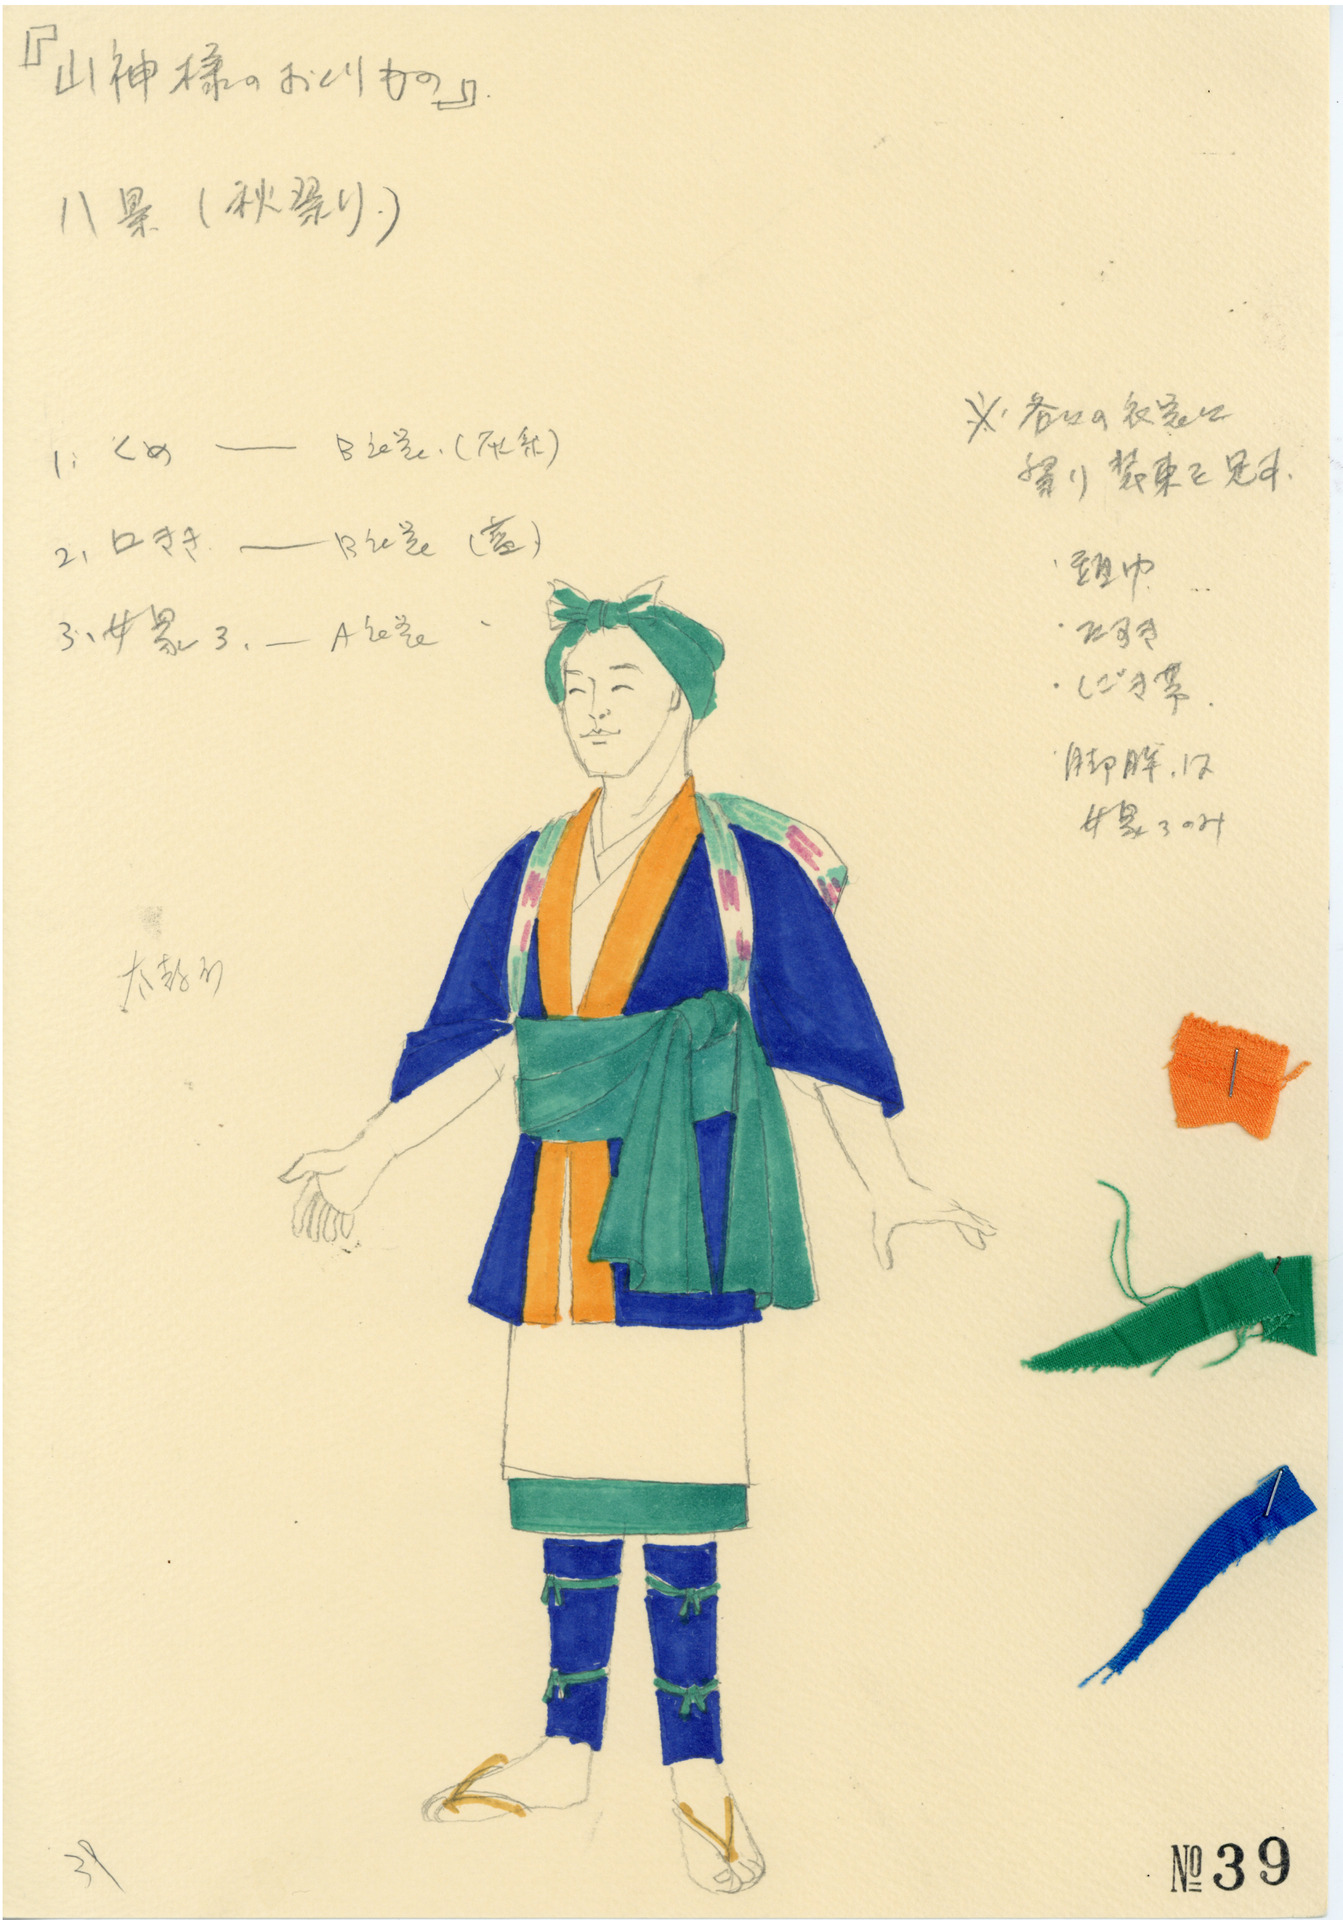 『山神様のおくりもの』
八景(秋祭り)
1. くめ — B衣裳.(灰系)
2. 口きき — B衣裳(藍)
3. 女衆3. — A衣裳
※ 各々の衣裳に
踊り装束を足す.
・頭巾
・たすき
・しごき帯.
・脚胖.は
女衆3のみ
39
№39